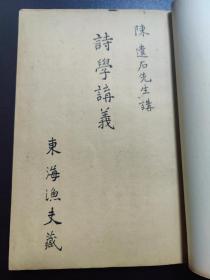 陳遺石先生講
詩學講義
東海漁夫藏